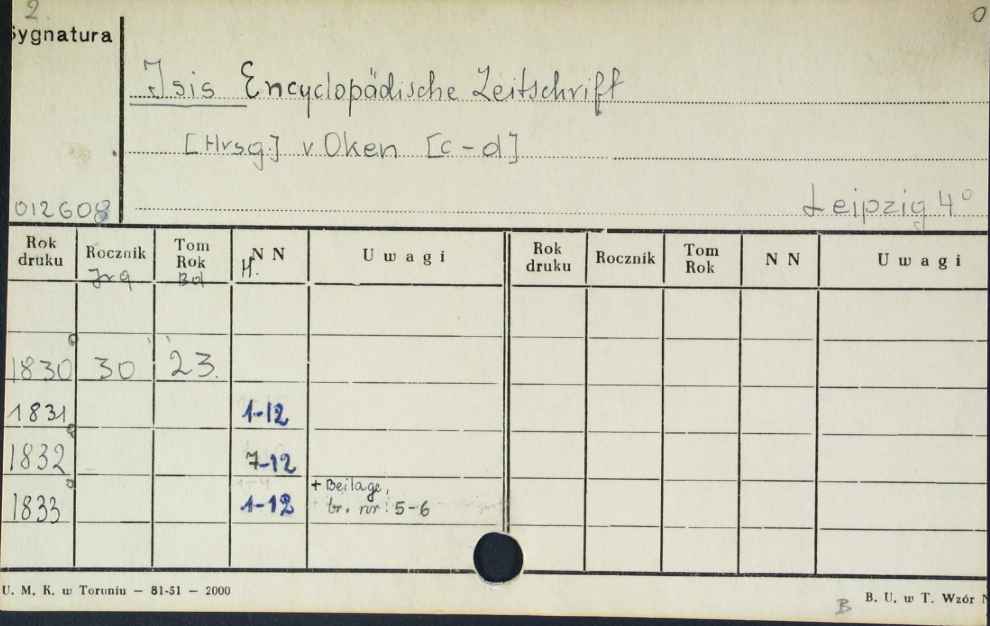 2.
Sygnatura
0
Isis Encyclopädische Zeitschrift
[Hrsg.] v Oken [c-d]
012608
Leipzig 4°
Rok druku Rocznik Tom Rok NN Uwagi Rok druku Rocznik Tom Rok NN Uwagi
Jrg Bd H.
1830 30 23.
1831 1-12
1832 7-12
1833 1-12 + Beilage,
br. nr: 5-6
U. M. K. w Toruniu — 81-51 — 2000
B
B. U. w T. Wzór N